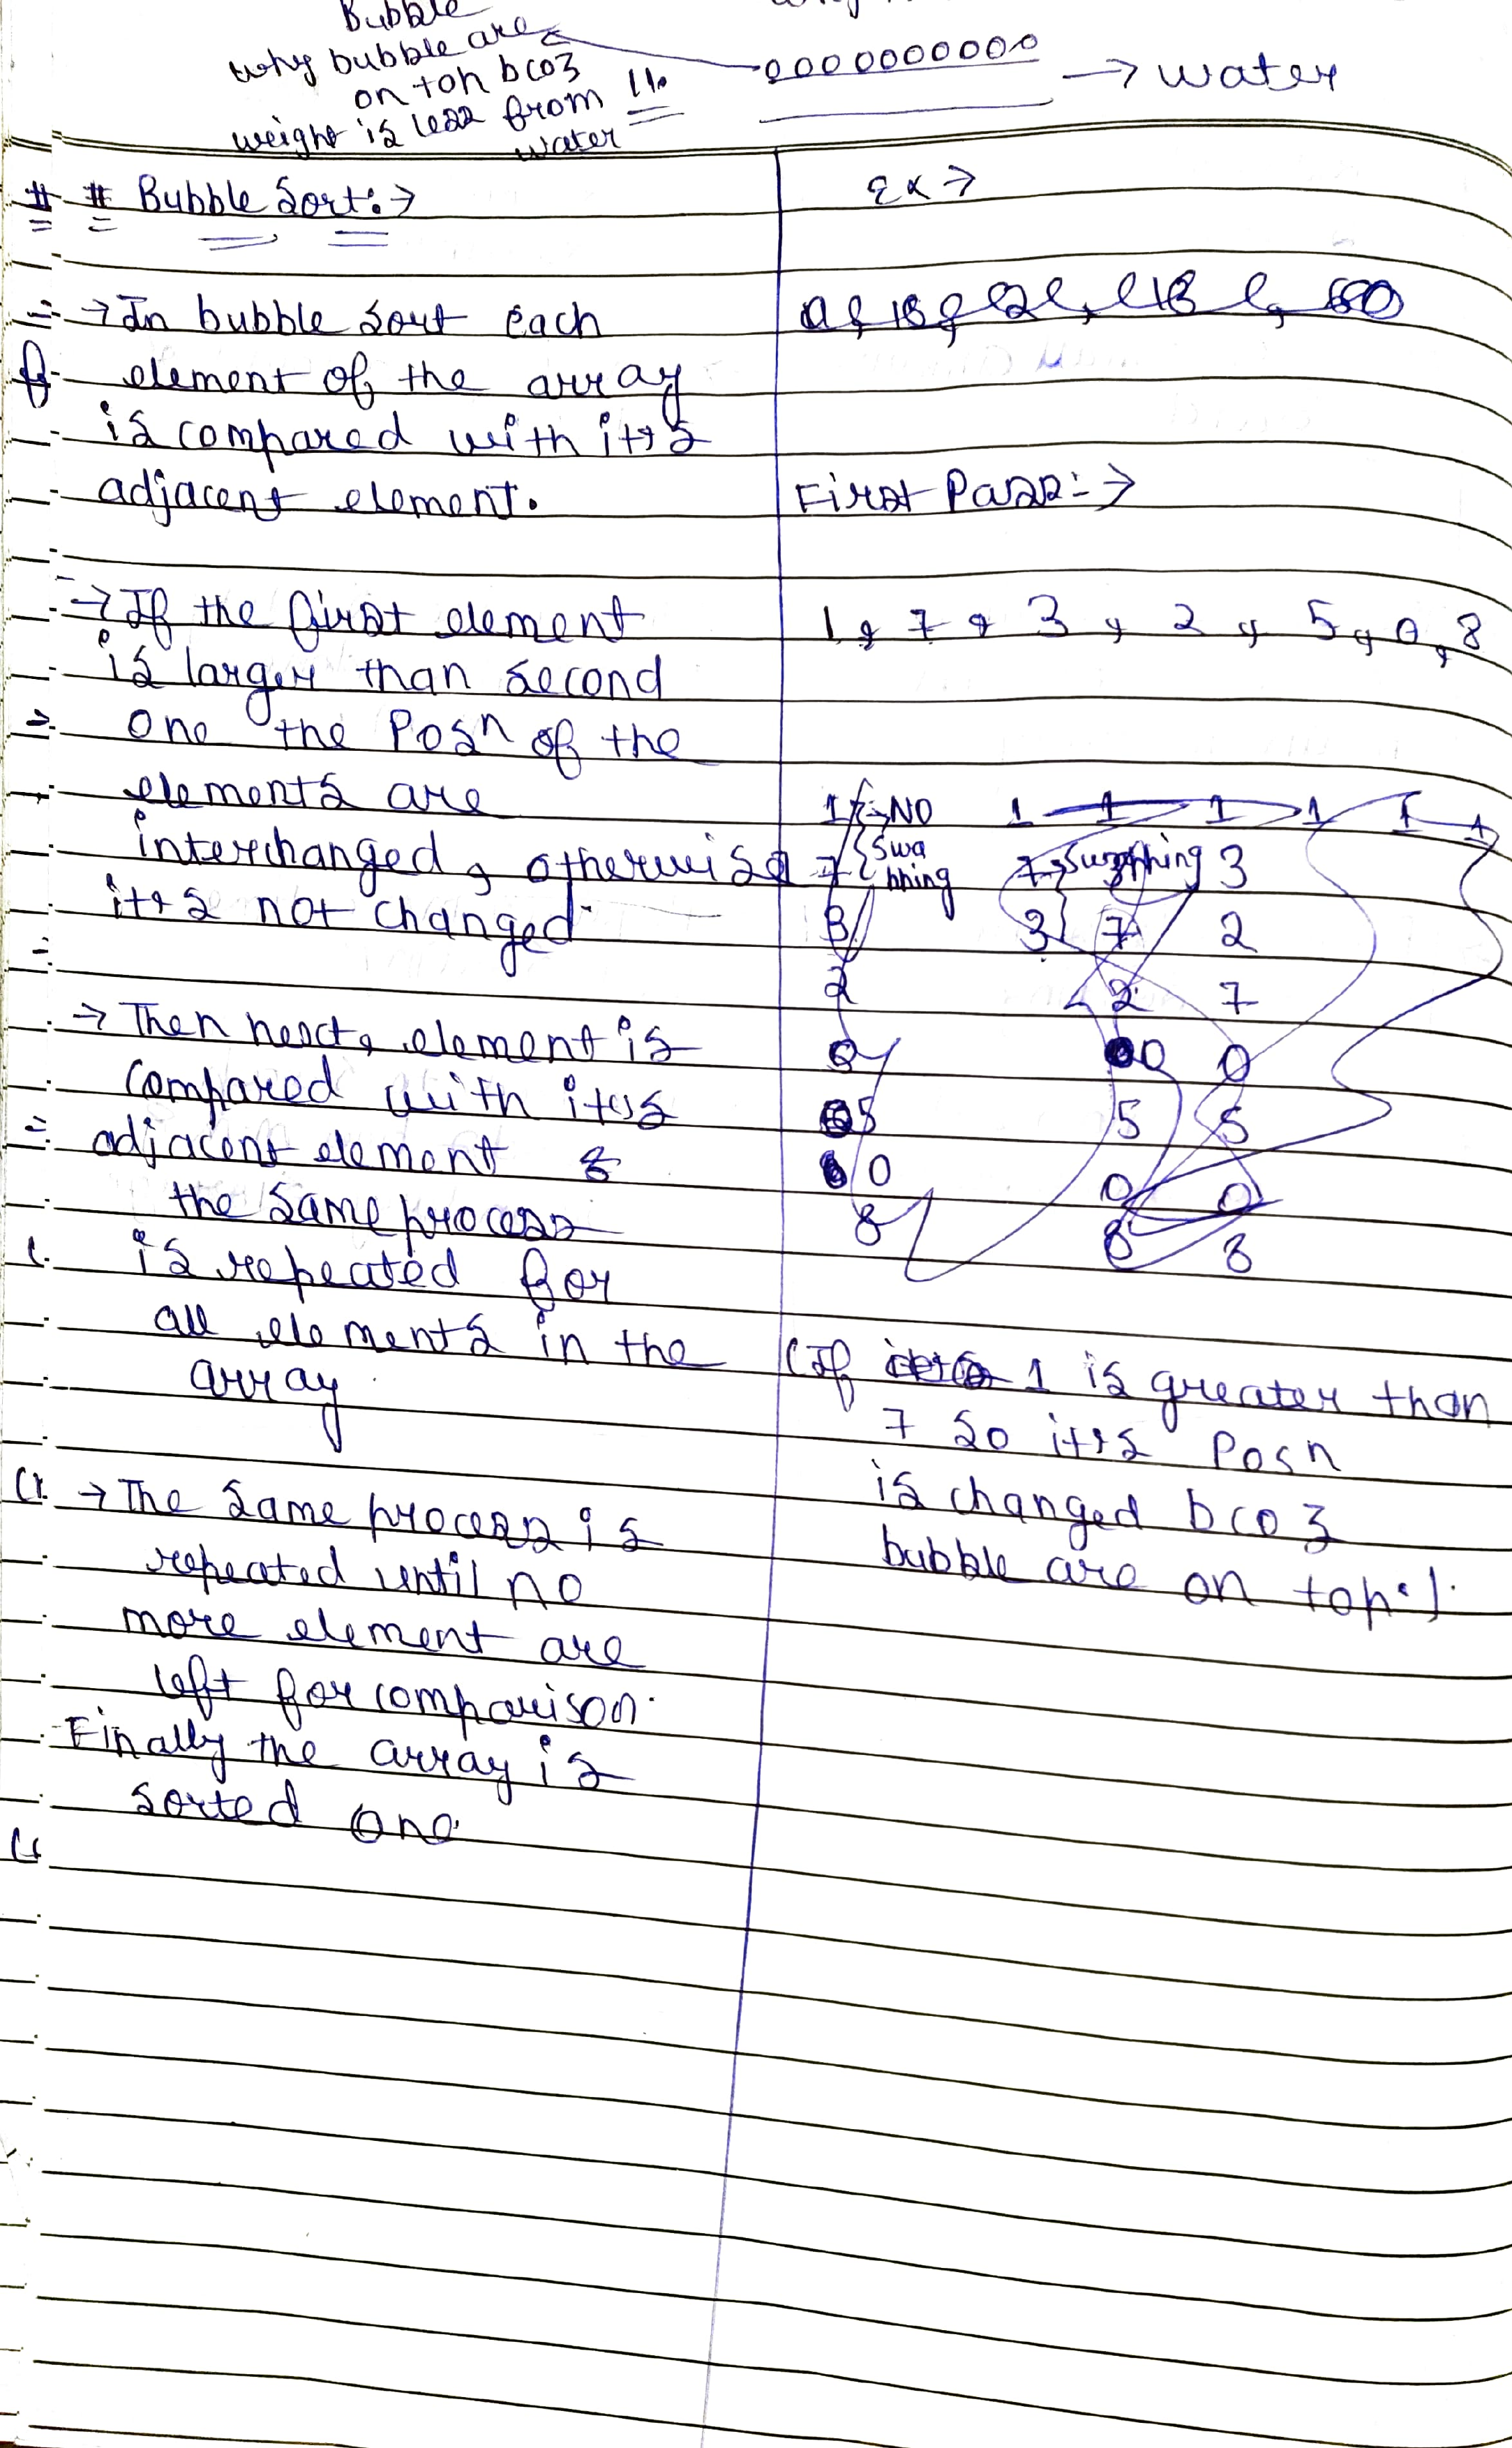 Bubble
why bubble are
on toh bcoz
weight is less from
water
000 0000000 → water
# # Bubble Sort:→
→ In bubble sort each
element of the array
is compared with it's
adjacent element.
→ If the first element
is larger than second
one the Posn of the
elements are
interchanged, otherwise
it's not changed
→ Then next, element is
compared with it's
adjacent element &
the same process
is repeated for
all elements in the
array.
→ The same process is
repeated until no
more element are
left for comparison.
Finally the array is
sorted one.
Ex →
First Pass:- →
1, 7, 3, 2, 5, 0, 8
1 → NO 1 1 1 1 1 1
7 Swa 7 Swapping 3
pping
3 3 7 2
2 2 7
0 0
5 5 5
0 0 0
8 8 8
(If 1 is greater than
7 so it's Posn
is changed bcoz
bubble are on top.)